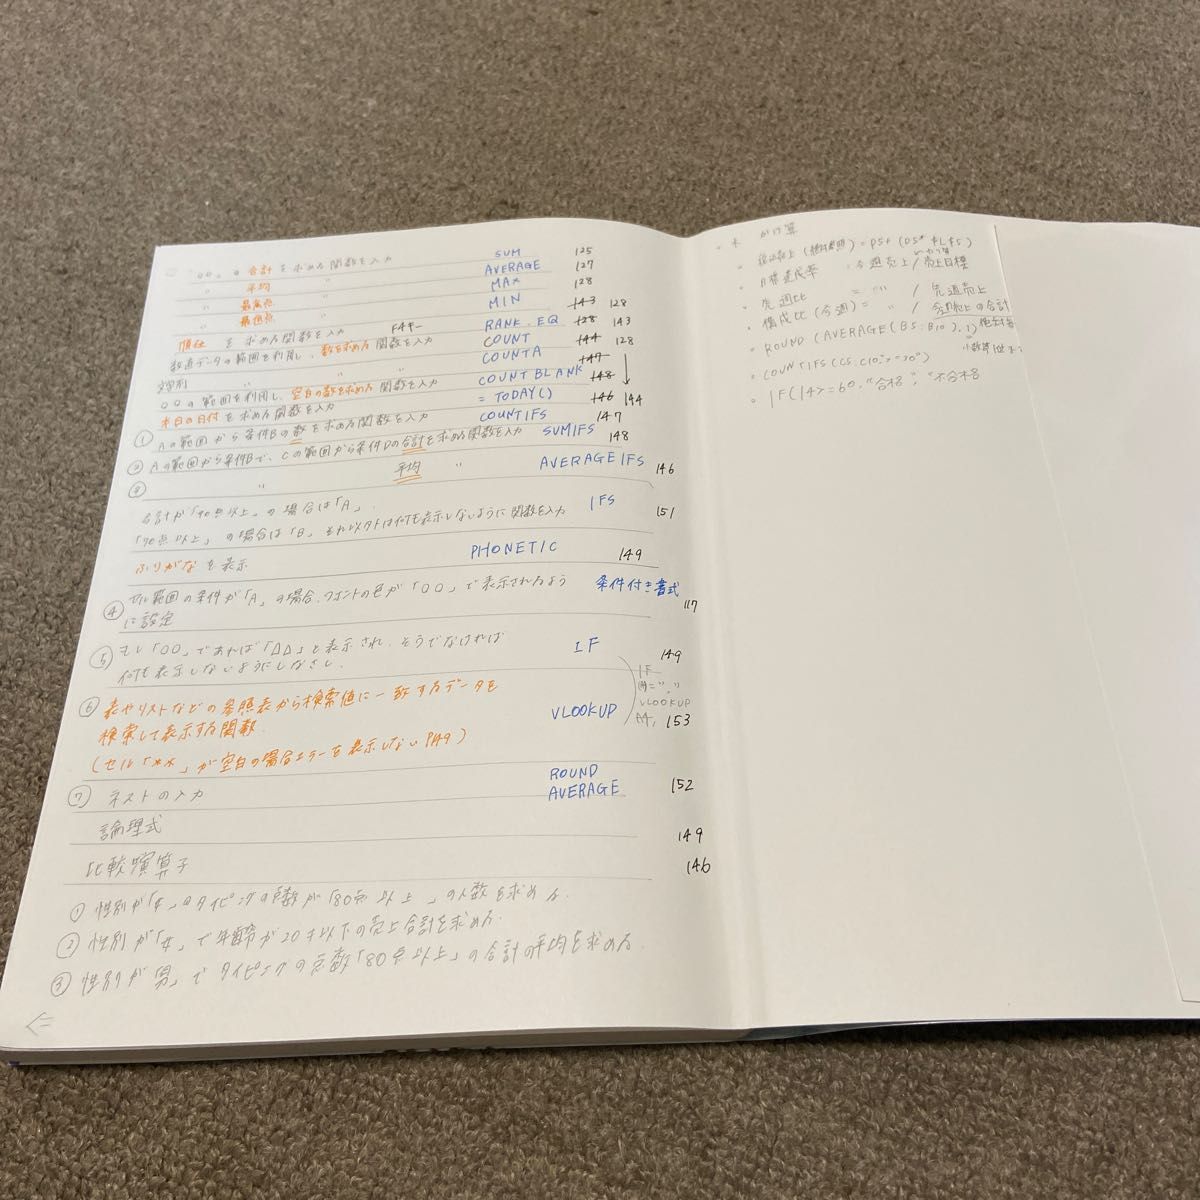 「○○」の合計を求める関数を入力 SUM 125
〃 平均 〃 AVERAGE 127
〃 最高点 〃 MAX 128
〃 最低点 〃 MIN 143 128
順位 を求める関数を入力 F4キー RANK.EQ 128 143
数値データの範囲を利用し、数を求める関数を入力 COUNT 144 128
文字列 〃 〃 COUNTA 147
○○の範囲を利用し、空白の数を求める関数を入力 COUNTBLANK 148
本日の日付を求める関数を入力 =TODAY() 146 144
① Aの範囲から条件Bの数を求める関数を入力 COUNTIFS 147
② Aの範囲から条件Bで、Cの範囲から条件Dの合計を求める関数を入力 SUMIFS 148
③ 〃 平均 〃 AVERAGEIFS 146
合計が「90点以上」の場合は「A」、
「70点以上」の場合は「B」、それ以外は何も表示しないように関数を入力 IFS 151
ふりがなを表示 PHONETIC 149
④ セル範囲の条件が「A」の場合、フォントの色が「○○」で表示されるよう 条件付き書式
に設定 117
⑤ もし「○○」であれば「△△」と表示され、そうでなければ IF 149
何も表示しないようにしなさい。
IF
⑥ 表やリストなどの参照表から検索値に一致するデータを
検索して表示する関数 VLOOKUP 153
VLOOKUP
(セル「**」が空白の場合エラーを表示しない P149)
⑦ ネストの入力 ROUND
AVERAGE 152
論理式 149
比較演算子 146
① 性別が「女」のタイピングの点数が「80点以上」の人数を求めよ。
② 性別が「女」で年齢が20才以下の売上合計を求めよ。
③ 性別が「男」でタイピングの点数「80点以上」の合計の平均を求める
・* かけ算
・ (絶対参照) =
・目標達成率 = 今週売上/売上目標
・先週比 = 〃 / 先週売上
・構成比(今週) = 〃 / 今週売上の合計
・ROUND(AVERAGE(B5:B10),1)
・COUNTIFS(C5:C10,">=20")
・IF(I4>=60,"合格","不合格